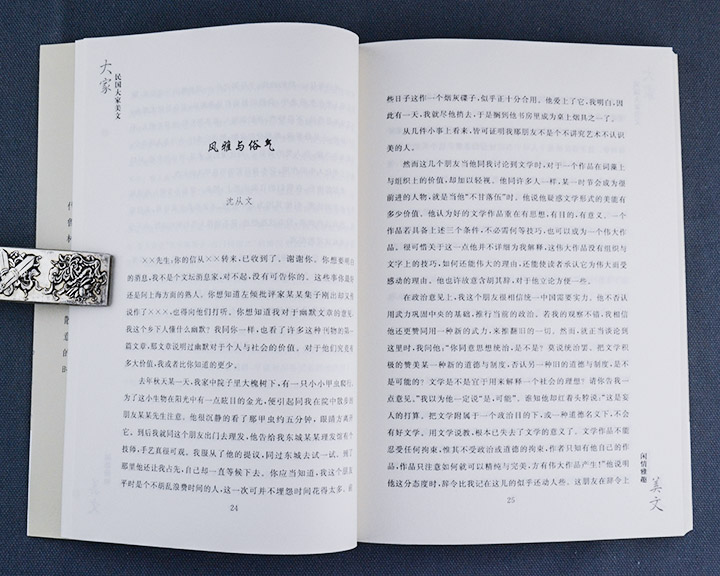 大家
民国大家美文
风雅与俗气
沈从文
××先生:你的信从××转来,已收到了。谢谢你。你想要明白
的消息,我不是个文坛消息家,对不起,没有可告你的。这些事你最好
还是问上海方面的熟人。你想知道左倾批评家某某集子刚出却又
说作了×××,也得向他们打听。你想知道我对于幽默文章的意见,
我这个乡下人懂什么幽默?我同你一样,也看了许多这种刊物的第一
篇文章,那文章说明过幽默对于个人与社会的价值。对于他们究竟有
多大价值,我或者比你知道的更少。
去年秋天某一天,我家中院子里大槐树下,有一只小小甲虫爬行,
为了这小生物在阳光中有一点炫目的金光,便引起同我在院中散步的
朋友某某先生注意。他很沉静的看了那甲虫约五分钟,眼睛方离开
它。到后我就同这个朋友出门去理发,他告给我东城某某理发馆有个
技师,手艺真很可观。我服从了他的提议,同过东城去试一试。到了
那里他还让我占先,自己却一直等候下去。你应当知道,我这个朋友
平时是个不胡乱浪费时间的人,这一次可并不埋怨时间花得太多。前
24
些日子这作一个烟灰碟子,似乎正十分合用。他爱上了它,我明白,因
此有一天,我就尽他捎去,于是搁到他书房里成为桌上烟具之一了。
从几件小事上看来,皆可证明我那朋友不是个不讲究艺术不认识
美的人。
然而这几个朋友当他同我讨论到文学时,对于一个作品在词藻上
与组织上的价值,却加以轻视。他同许多人一样,某一时节会成为很
前进的人物,就是当他“不甘落伍”时。他说他疑惑文学形式的美能有
多少价值。他认为好的文学作品重在有思想,有目的,有意义。一个
作品若具备上述三个条件,不必需何等技巧,也可以成为一个伟大作
品。很可惜关于这一点他并不详细为我解释,这伟大作品没有组织与
文字上的技巧,如何还能伟大的理由,还能使读者承认它为伟大而受
感动的理由。他也许故意含胡其辞,对于他立论方便一些。
在政治意见上,我这个朋友很相信统一中国需要实力。他不否认
用武力巩固中央的基础,推行当前的政治。若我的观察不错,我相信
他还更赞同用一种新的武力,来推翻旧的一切。然而,就正当谈论到
这里时,我问他:“你同意思想统治,是不是?莫说统治罢。把文学积
极的赞美某一种新的道德与制度,否认另一种旧的道德与制度,是不
是可能的?文学是不是宜于用来解释一个社会的理想?请你告我一
点意见。”我以为他一定说“是,可能”。谁知他却红着头脖说:“这是妄
人的打算。把文学附属于一个政治目的下,或一种道德名义下,不会
有好文学。用文学说教,根本已失去了文学的意义了。文学作品不能
忍受任何拘束,惟其不受政治或道德的拘束,作者只知有他自己的作
品,作品只注意如何就可以精纯与完美,方有伟大作品产生!”他说明
他这分态度时,辞令比我记在这儿的似乎还动人些。这朋友在辞令上
25
闲情雅趣
美文